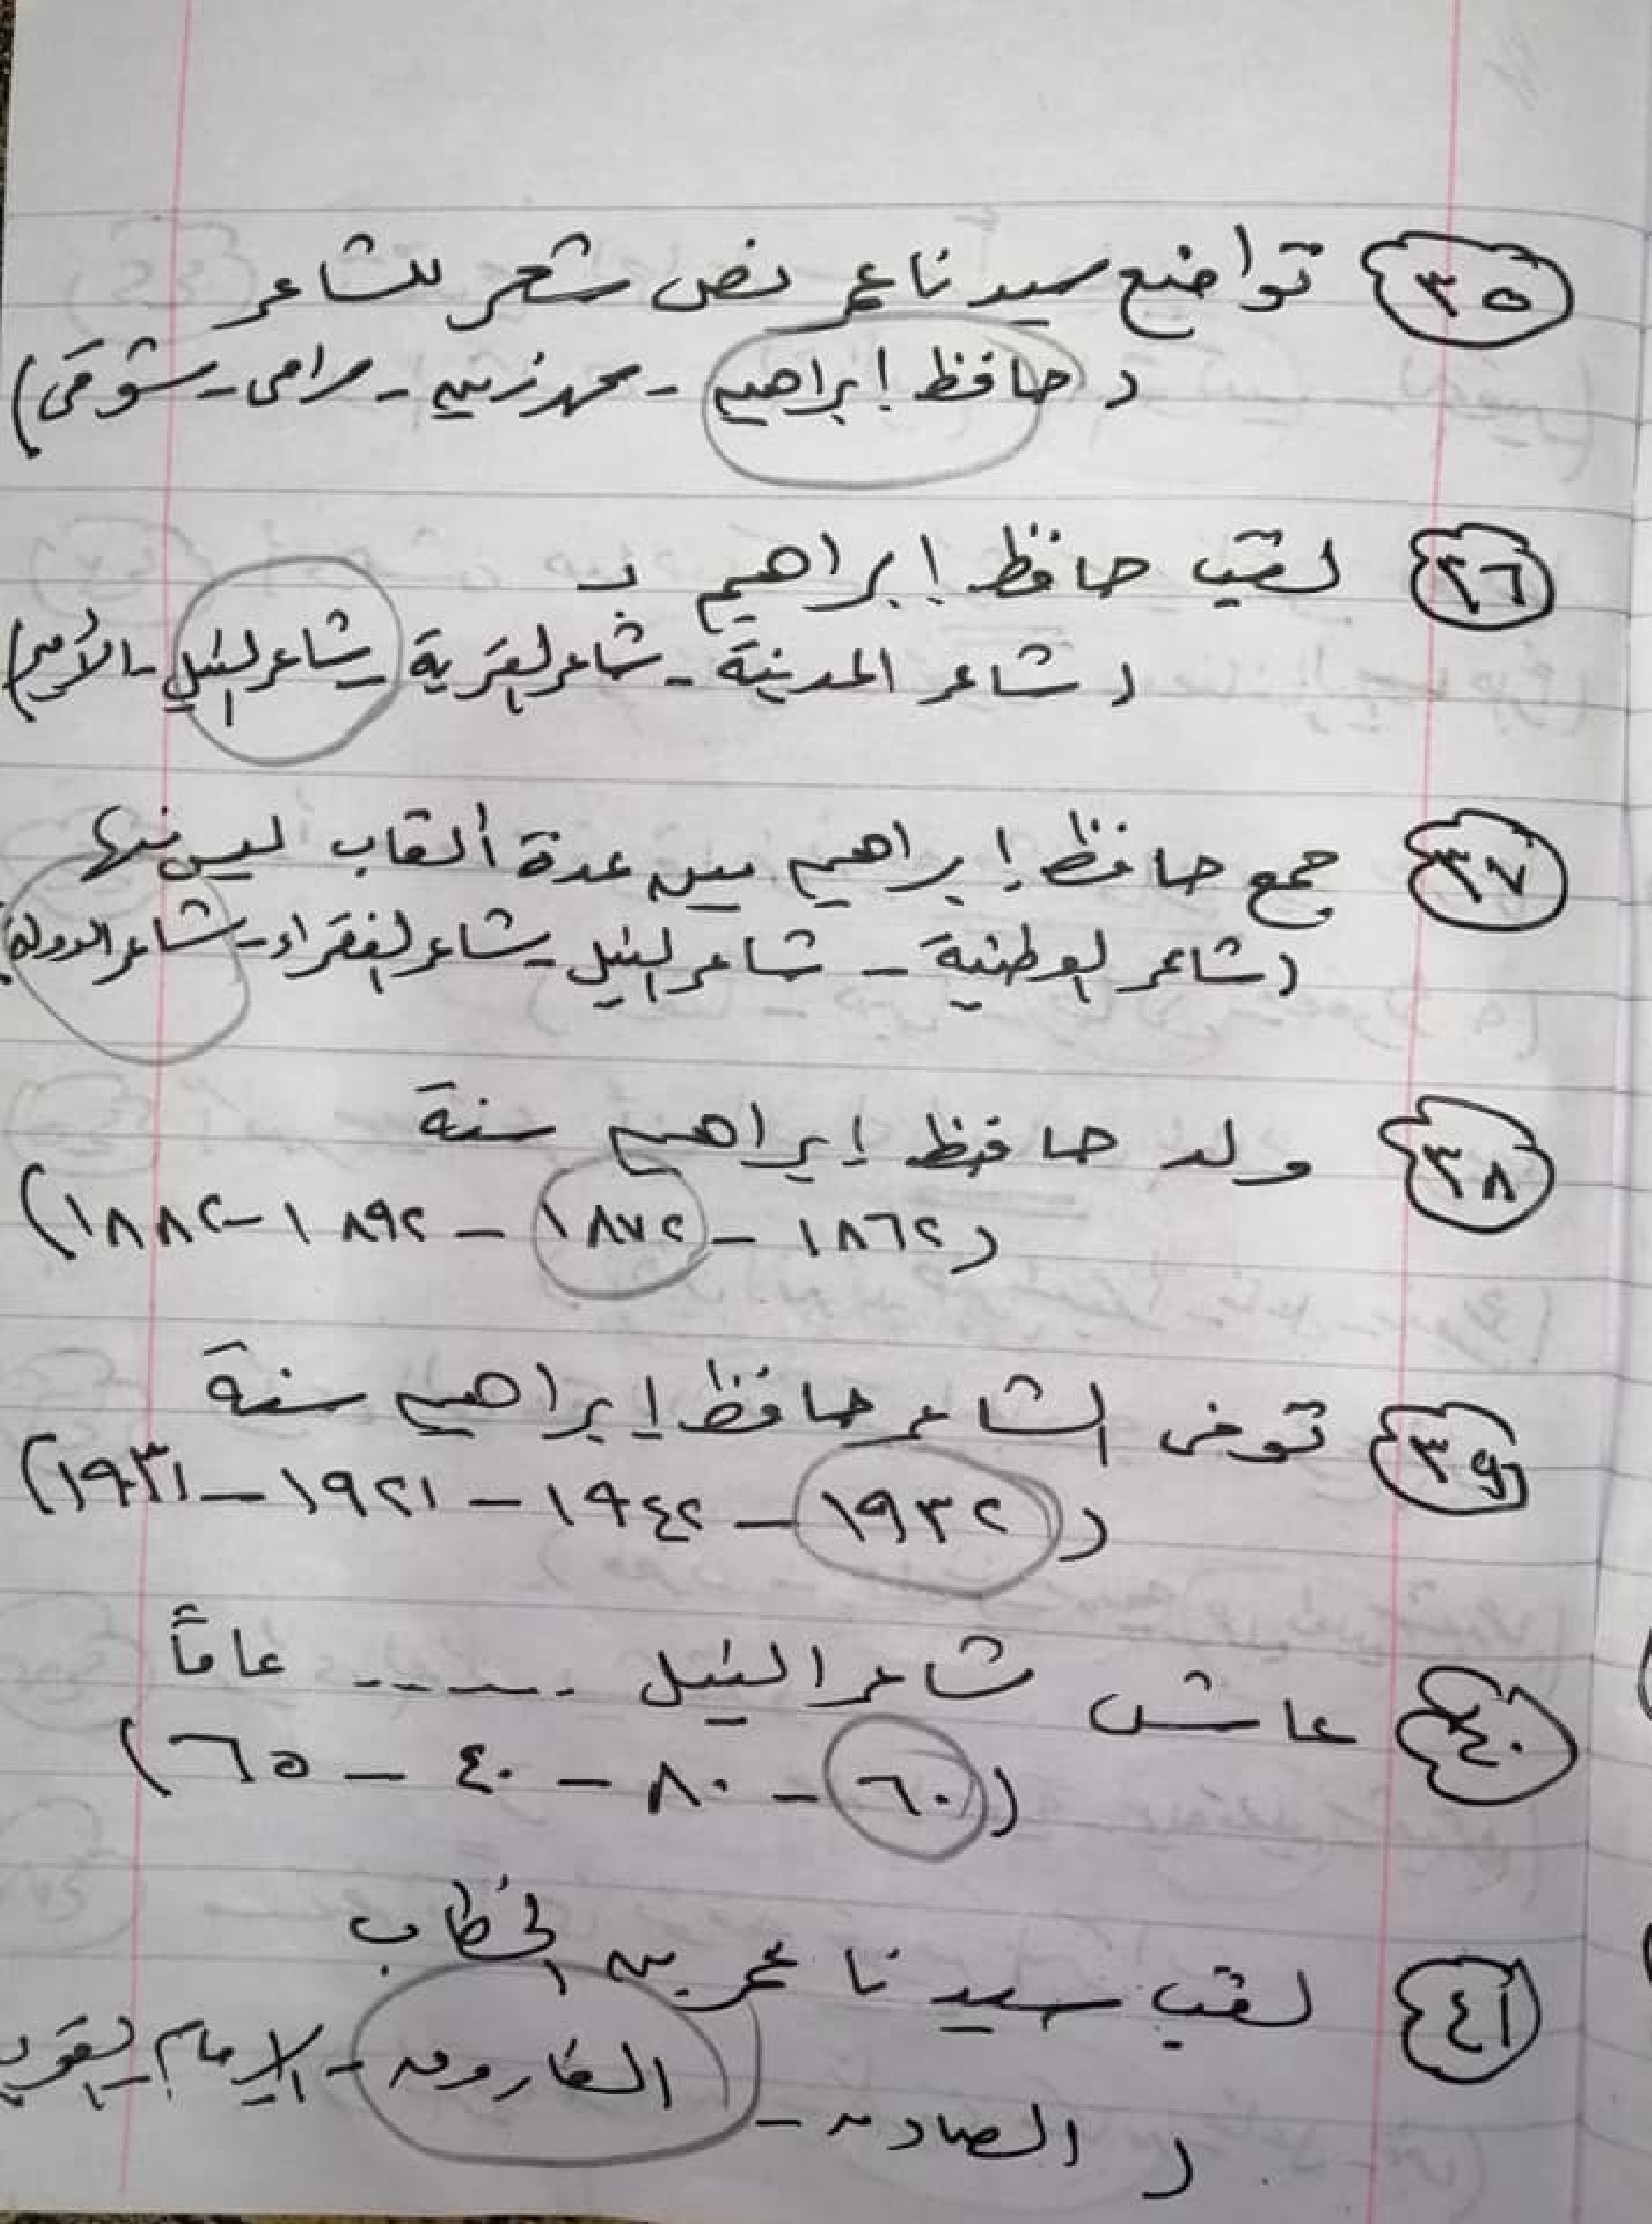 ٣٥ تواضع سيدنا عمر نص شعر للشاعر
(حافظ إبراهيم - محمد زينهم - رامى - شوقى)
٣٦ لقب حافظ إبراهيم بـ
(شاعر المدينة - شاعر القرية - شاعر النيل - الأمير)
٣٧ جمع حافظ إبراهيم بين عدة ألقاب ليس منها
(شاعر الوطنية - شاعر النيل - شاعر الفقراء - شاعر الدولة)
٣٨ ولد حافظ إبراهيم سنة
(١٨٦٢ - ١٨٧٢ - ١٨٩٢ - ١٨٨٢)
٣٩ توفى الشاعر حافظ إبراهيم سنة
(١٩٣٢ - ١٩٤٢ - ١٩٢١ - ١٩٣١)
٤٠ عاش شاعر النيل ------ عامًا
(٦٠ - ٨٠ - ٤٠ - ٦٥)
٤١ لقب سيدنا عمر بن الخطاب
(الصادق - الفاروق - الإمام -